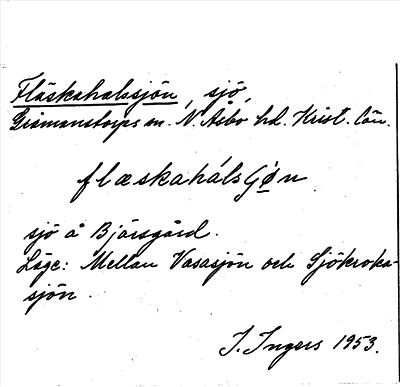 Fläskahalssjön, sjö,
Grämanstorps sn. N. Åsbo hd. Krist. län.
flæskahálsʃǿn
sjö å Bjärsgård.
Läge: Mellan Vasasjön och Sjökroka-
sjön.
I. Ingers 1953.